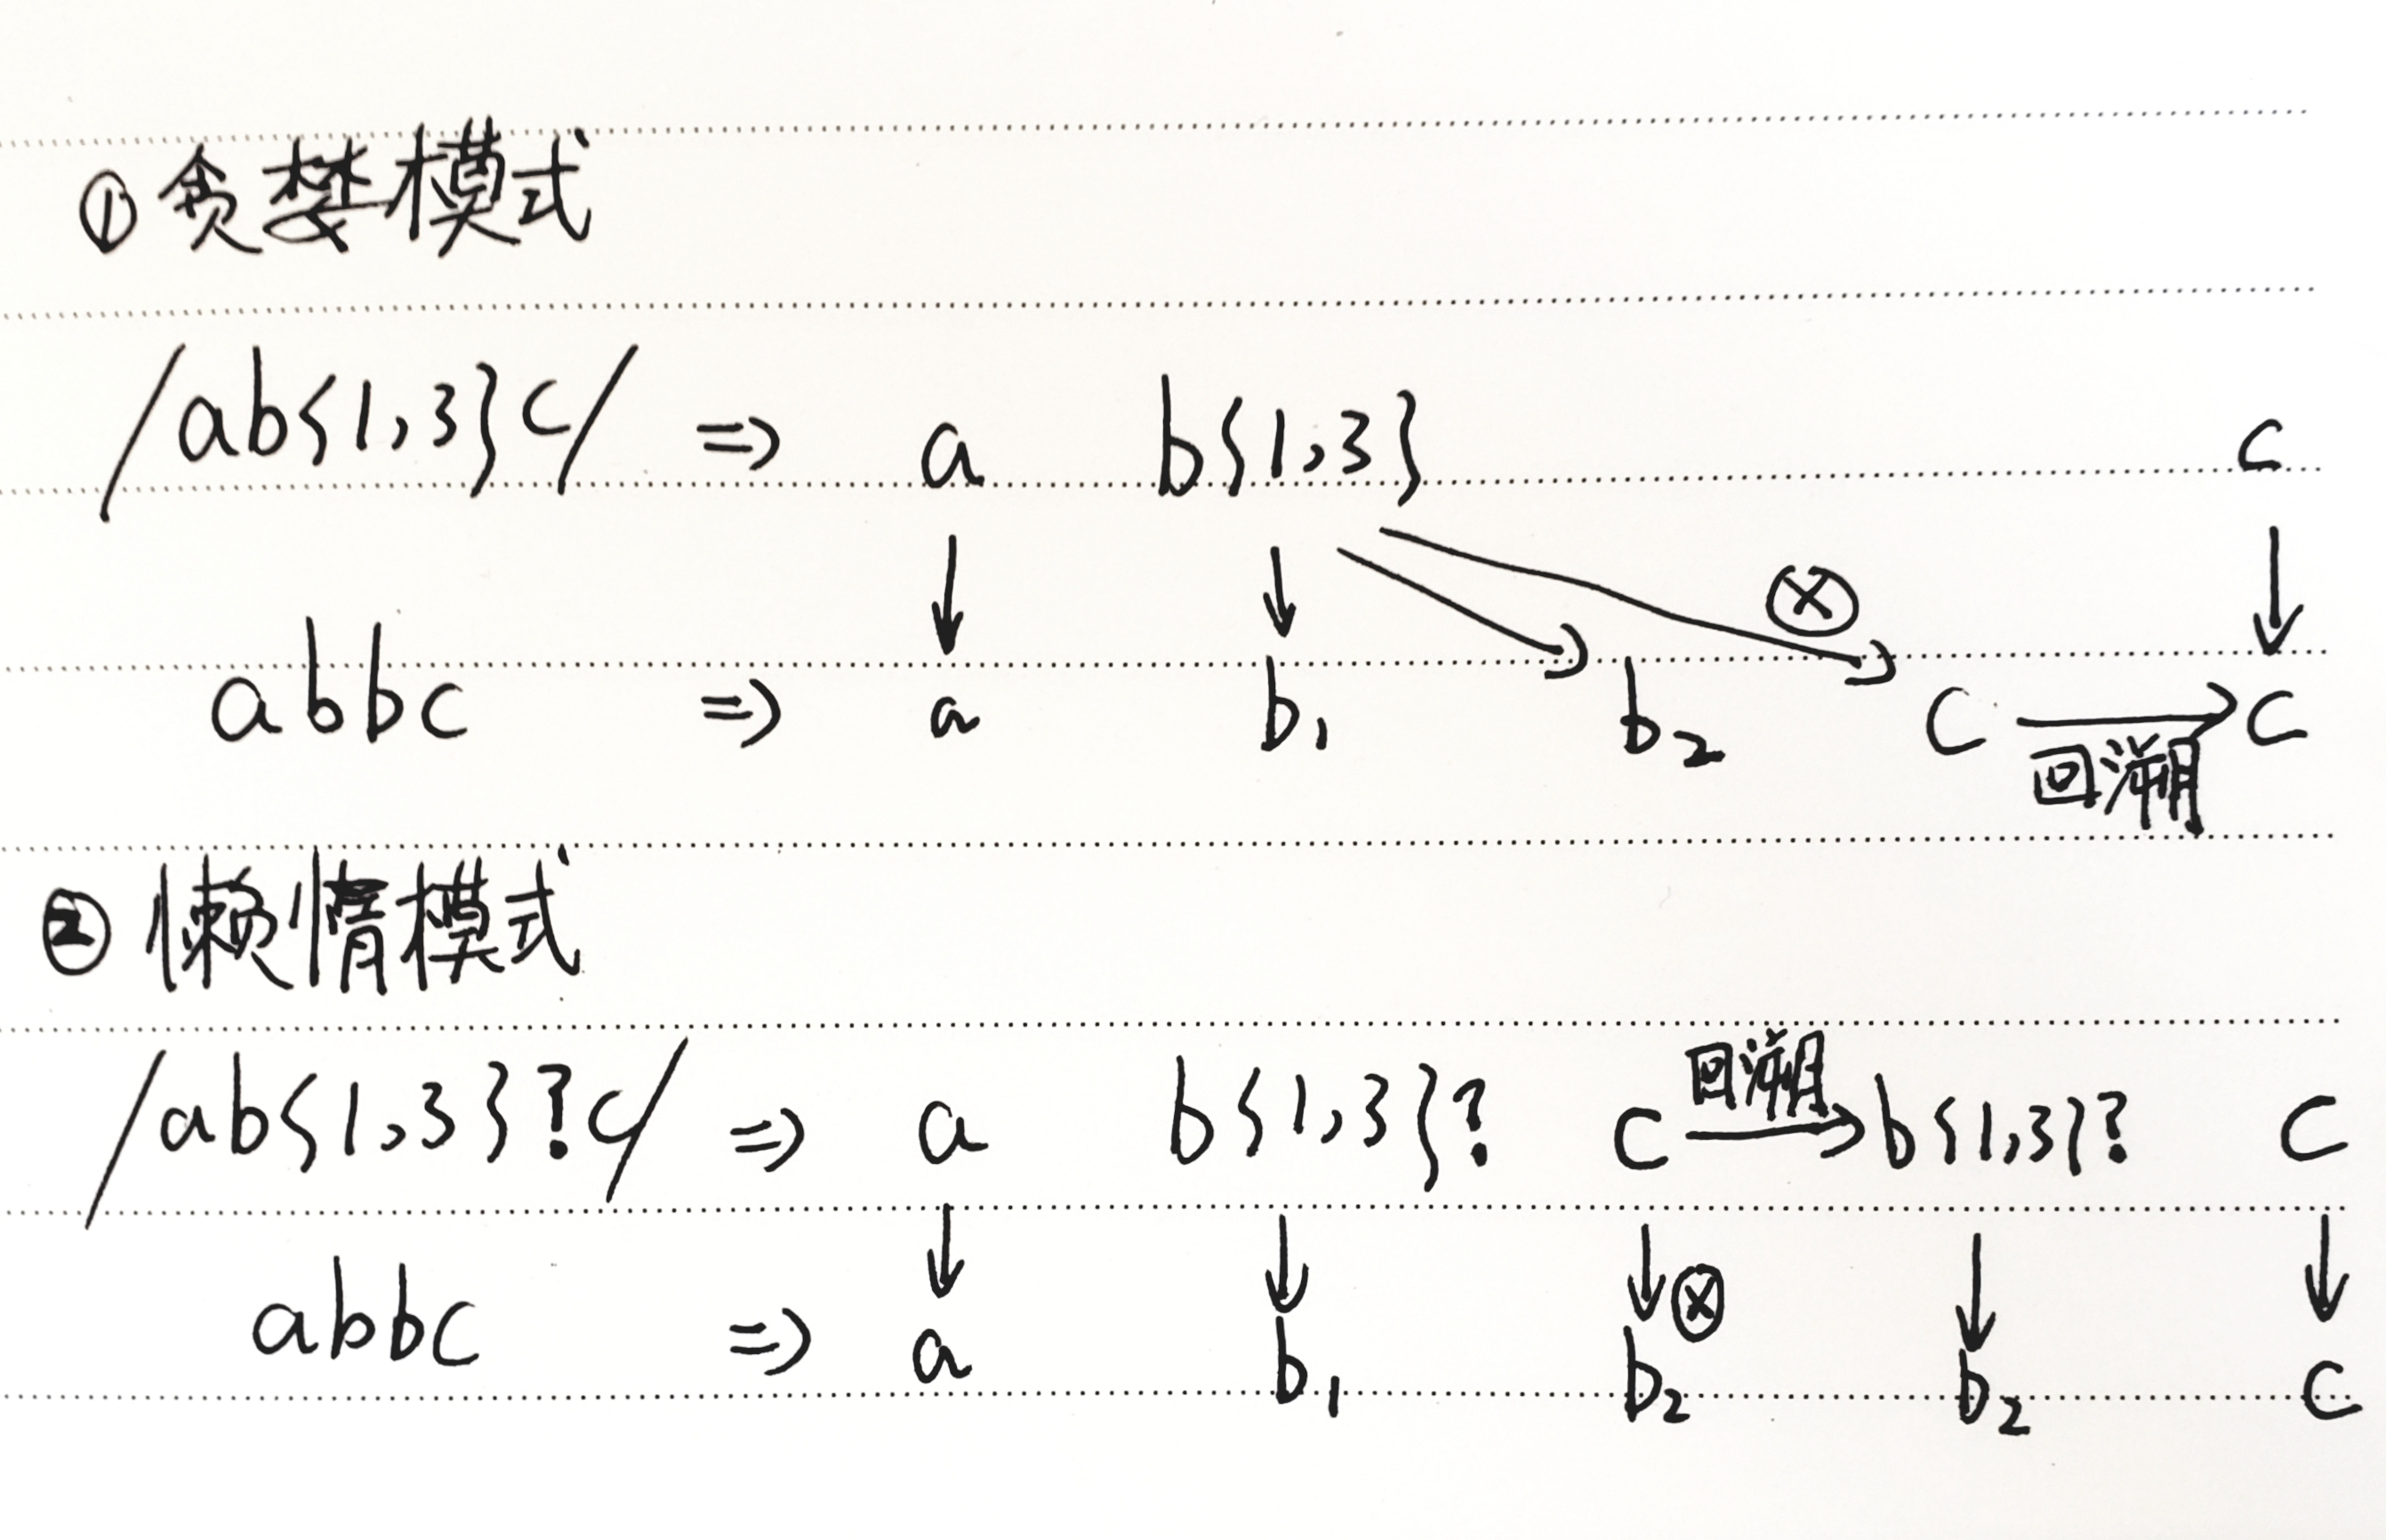 ①贪婪模式
/ab{1,3}c/ => a b{1,3} c
ⓧ
abbc => a b₁ b₂ c → c
回溯
②懒惰模式
回溯
/ab{1,3}?c/ => a b{1,3}? c → b{1,3}? c
ⓧ
abbc => a b₁ b₂ b₂ c